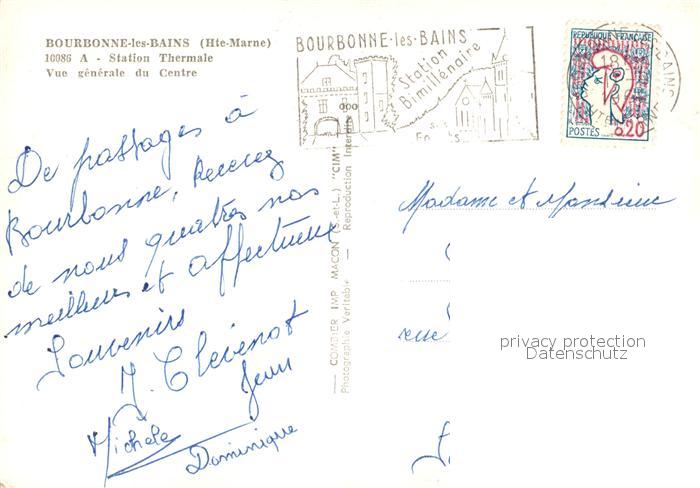 BOURBONNE-les-BAINS (Hte-Marne)
10086 A - Station Thermale
Vue générale du Centre
BOURBONNE-les-BAINS
Station
Bimillénaire
REPUBLIQUE FRANÇAISE
18
POSTES
0,20
De passages à
Bourbonne, recevez
de nous quatres nos
meilleurs et affectueux
Souvenirs
J. Thevenot
Jean
Michèle
Dominique
— COMBIER IMP. MACON (S.-et-L.) "CIM" —
Photographie Véritable - Reproduction Interdite
Madame et Monsieur
rue
privacy protection
Datenschutz